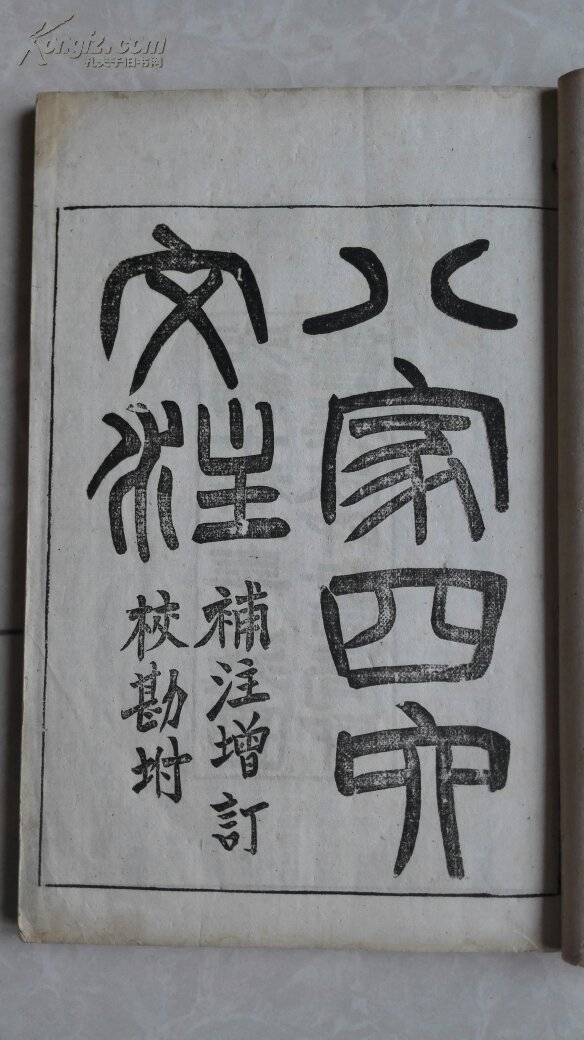 八家四六
文注
補注增訂
校勘坿
Kongfz.com
孔夫子旧书网